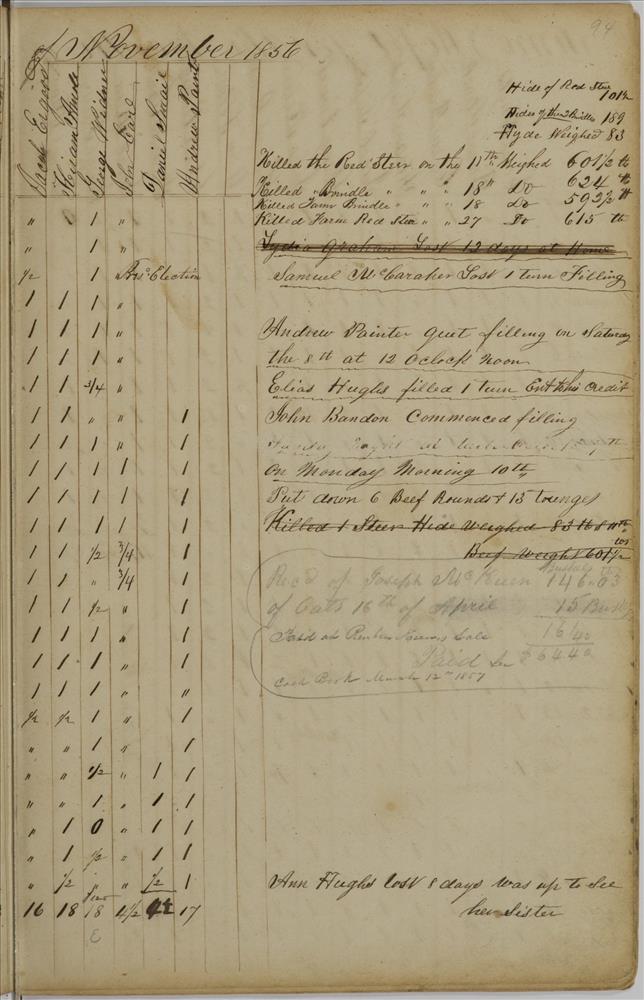 94
November 1856
Hide of Red Steer 101½
Hides of the 2 Brindles 159
Hyde Weighed 83
Jacob
Hiriam
George Widner
John Earl
Daniel
Andrew Painter
Killed the Red Steer on the 11th Weighed 601½ lb
Killed " Brindle " " " 18" Do 624 lb
Killed Farm Brindle " " 18 Do 592½ lb
Killed Farm Red Steer " " 27 Do 615 lb
" 1 "
Lydia Graham Lost 12 days at Home
" 1 "
Samuel McCaraher Lost 1 turn Filling
½ 1 " Election
1 1 1 "
1 1 1 "
Andrew Painter quit filling on Saturday
1 1 1 "
the 8th at 12 Oclock Noon
1 1 ¾ "
Elias Hughs filled 1 turn Ent to his Credit
1 1 " " 1
John Bandon Commenced filling
1 1 1 " 1
1 1 1 1 1
On Monday Morning 10th
1 1 1 1 1
Put down 6 Beef Rounds & 15 tounges
1 1 1 1 1
Killed 1 Steer Hide Weighed 83 lb
1 1 ½ ¾ 1
Beef Weighs 601½
1 1 " ¾ 1
Recd of Joseph McKuen 146.03
1 1 ½ " 1
of Oats 16th of April 15 Bush
1 1 1 " 1
Paid at Reuben Sale 16 40
1 1 1 " 1
Paid $64.40
1 1 1 " "
Cash Book March 12th 1857
½ ½ 1 " 1
" " 1 " 1
" " ½ " 1 1
" " 1 " 1 1
" 1 0 " 1 1
" 1 ½ " 1 1
" ½ " ½ 1
Ann Hughs lost 8 days was up to See
16 18 18 4½ 17
her Sister